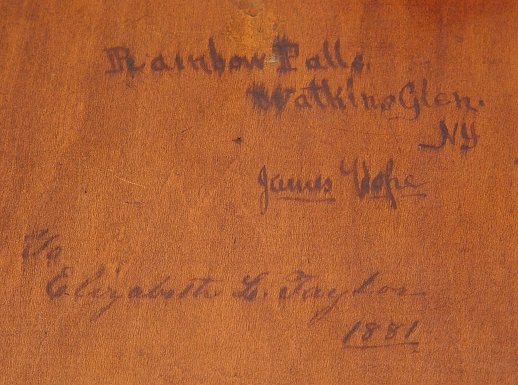 Rainbow Falls.
Watkins Glen.
NY
James Hope
To
Elizabeth L. Taylor
1881